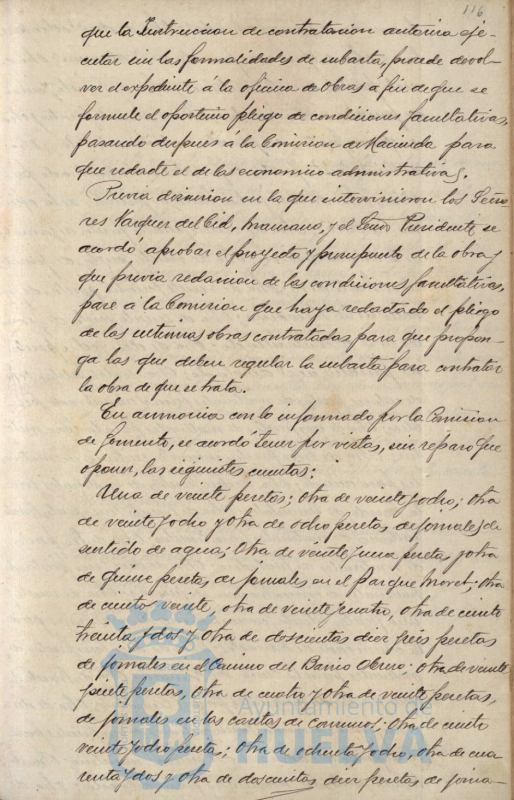 116
que la Instruccion de contratacion autoriza eje-
cutar sin las formalidades de subasta, procede devol-
ver el expediente á la oficina de Obras á fin de que se
formule el oportuno pliego de condiciones facultativas,
pasando despues á la Comision de Hacienda para
que redacte el de las economico administrativas.
Previa discusion en la que intervinieron los Seño-
res Vazquez del Cid, Mascaros, y el Señor Presidente se
acordó aprobar el proyecto y presupuesto de la obra y
que previa redaccion de las condiciones facultativas,
pase á la Comision que haya redactado el pliego
de las ultimas obras contratadas para que propon-
ga las que deben regular la subasta para contratar
la obra de que se trata.
En armonia con lo informado por la Comision
de Fomento, se acordó tener por vistas, sin reparo que
oponer, las siguientes cuentas:
Una de veinte pesetas; otra de veinte y ocho; otra
de veinte y ocho y otra de ocho pesetas de jornales de
sentido de agua; Otra de veinte y una pesetas y otra
de quince pesetas, de jornales en el Parque Moret; otra
de ciento veinte, otra de veinte y cuatro, otra de ciento
treinta y dos y otra de doscientas diez y seis pesetas
de jornales en el Camino del Barrio Obrero; otra de veinte
y siete pesetas, otra de cuatro y otra de veinte pesetas,
de jornales en las casetas de consumos; Otra de ciento
veinte y ocho pesetas; Otra de ochenta y ocho, otra de cua
renta y dos y otra de doscientas diez pesetas de jorna-
Ayuntamiento de
HUELVA